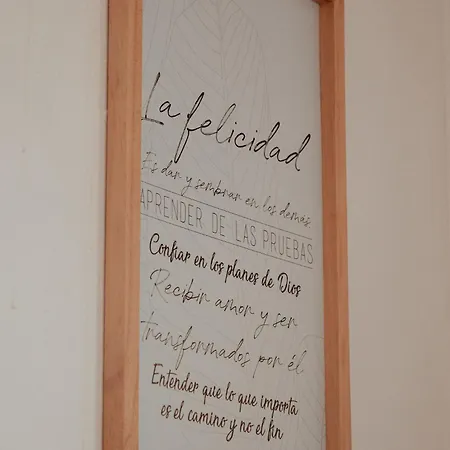 La felicidad
Es dar y sembrar en los demás.
APRENDER DE LAS PRUEBAS
Confiar en los planes de Dios
Recibir amor y ser
transformados por él
Entender que lo que importa
es el camino y no el fin